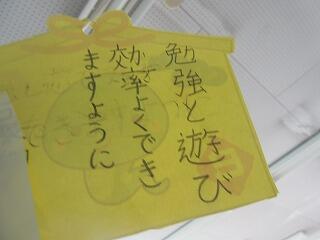 勉強と遊び
が効率よくでき
ますように